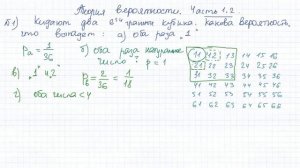 Теория вероятности. Часть 1.2
№1) Кидают два игральных кубика. Какова вероятность,
что выпадет: а) оба раза „1"
Pₐ = 1/36
б) оба раза натуральное
число P = 1
в) „1" и „2"
Pв = 2/36 = 1/18
г) оба числа < 4
11 12 13 14 15 16
21 22 23 24 25 26
31 32 33 34 35 36
41 42 43 44 45 46
51 52 53 54 55 56
61 62 63 64 65 66